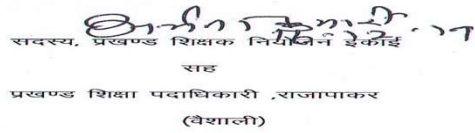 सदस्य, प्रखण्ड शिक्षक नियोजन ईकाई
सह
प्रखण्ड शिक्षा पदाधिकारी ,राजापाकर
(वैशाली)